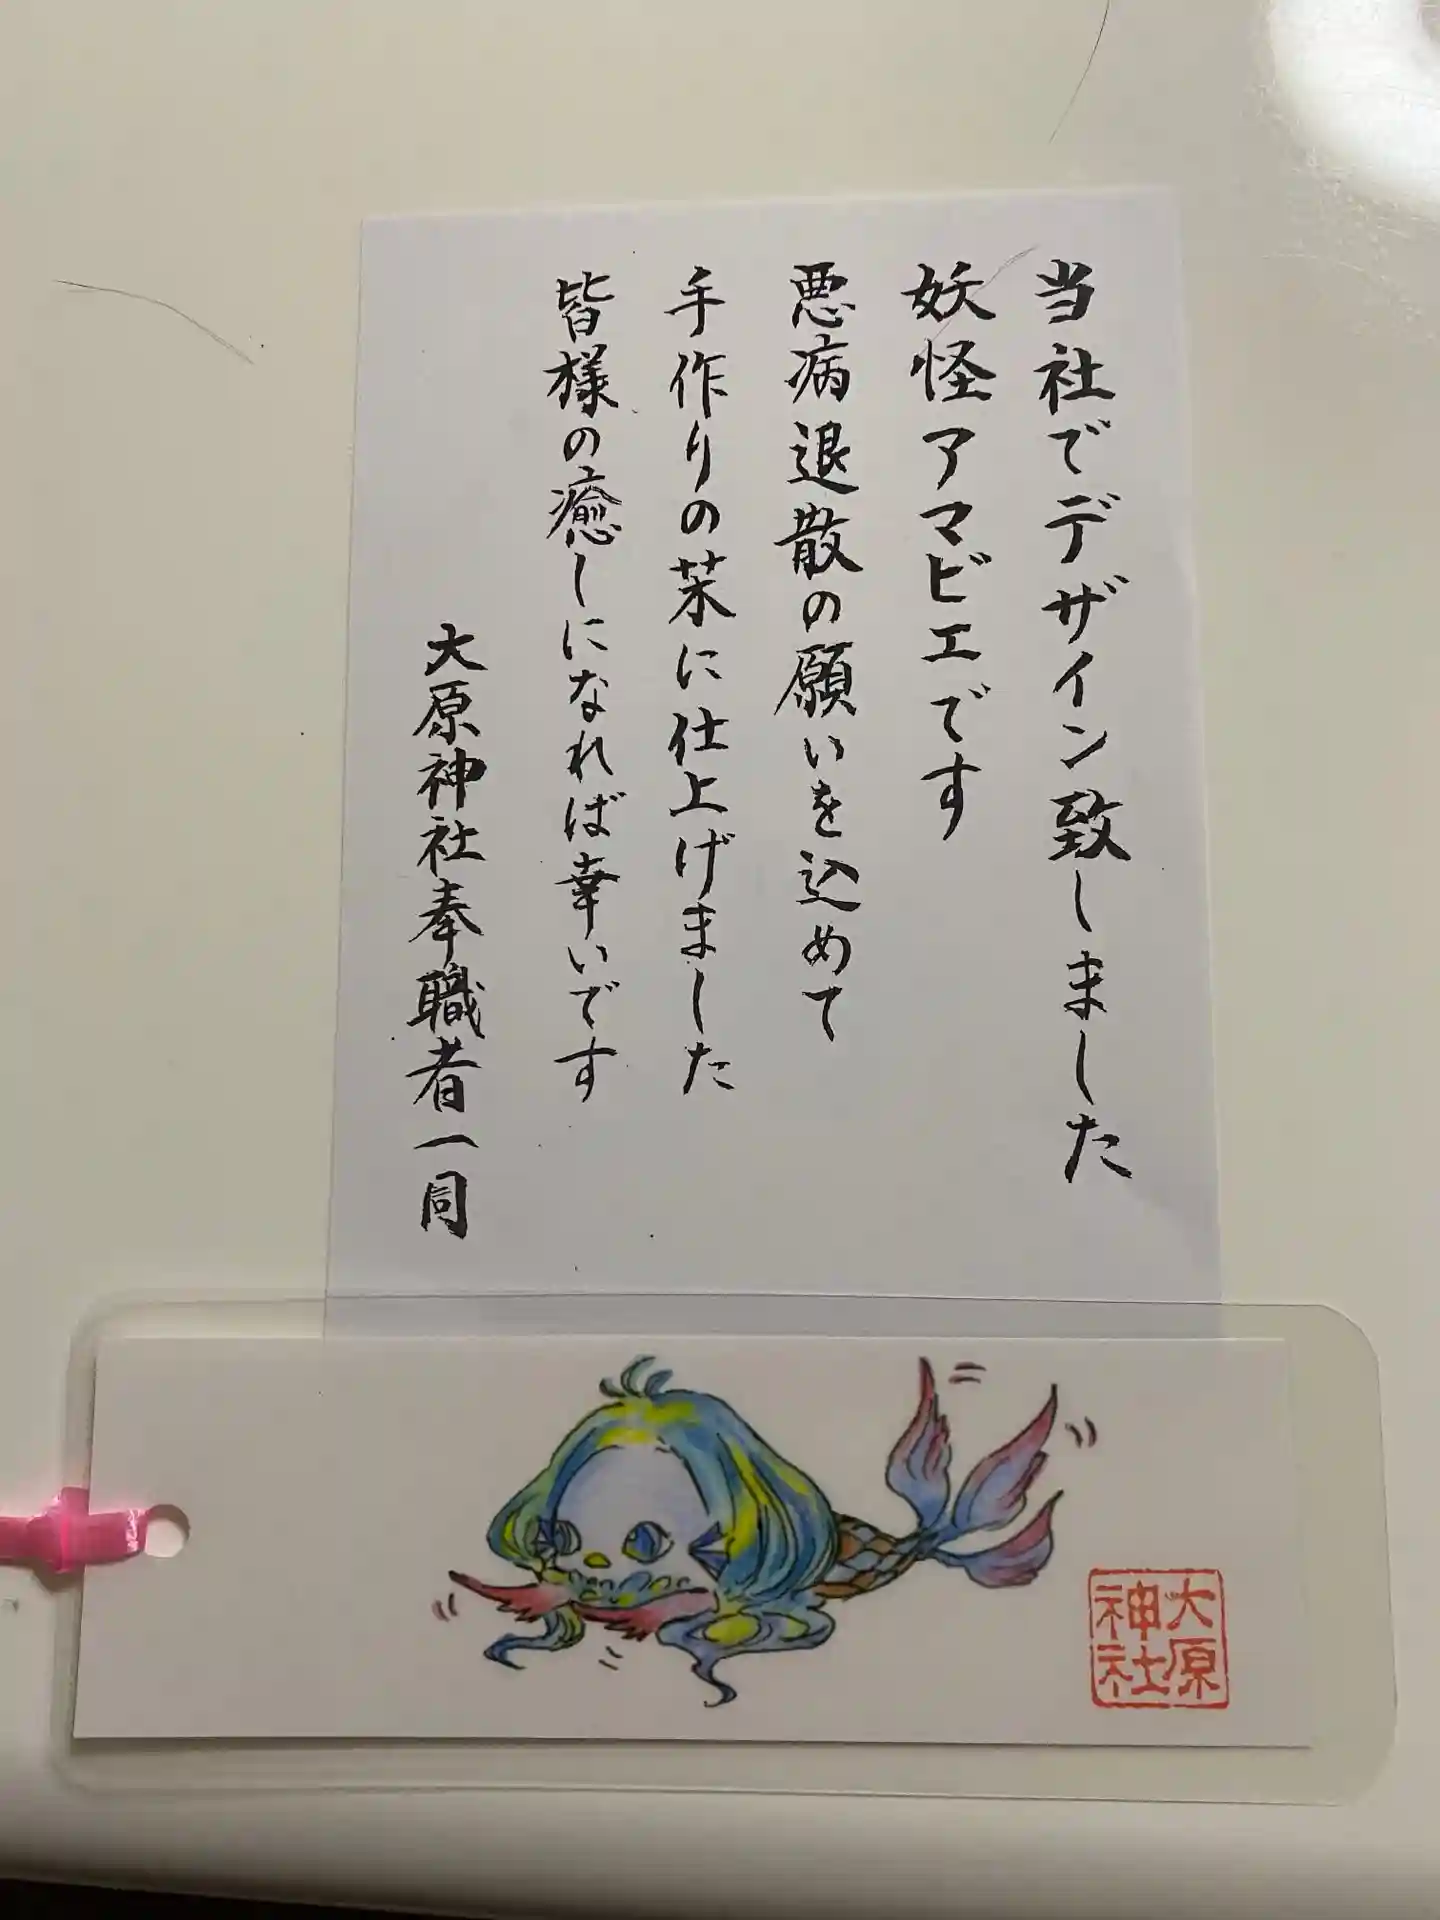 当社でデザイン致しました
妖怪アマビエです
悪病退散の願いを込めて
手作りの栞に仕上げました
皆様の癒しになれば幸いです
大原神社奉職者一同
大原
神社